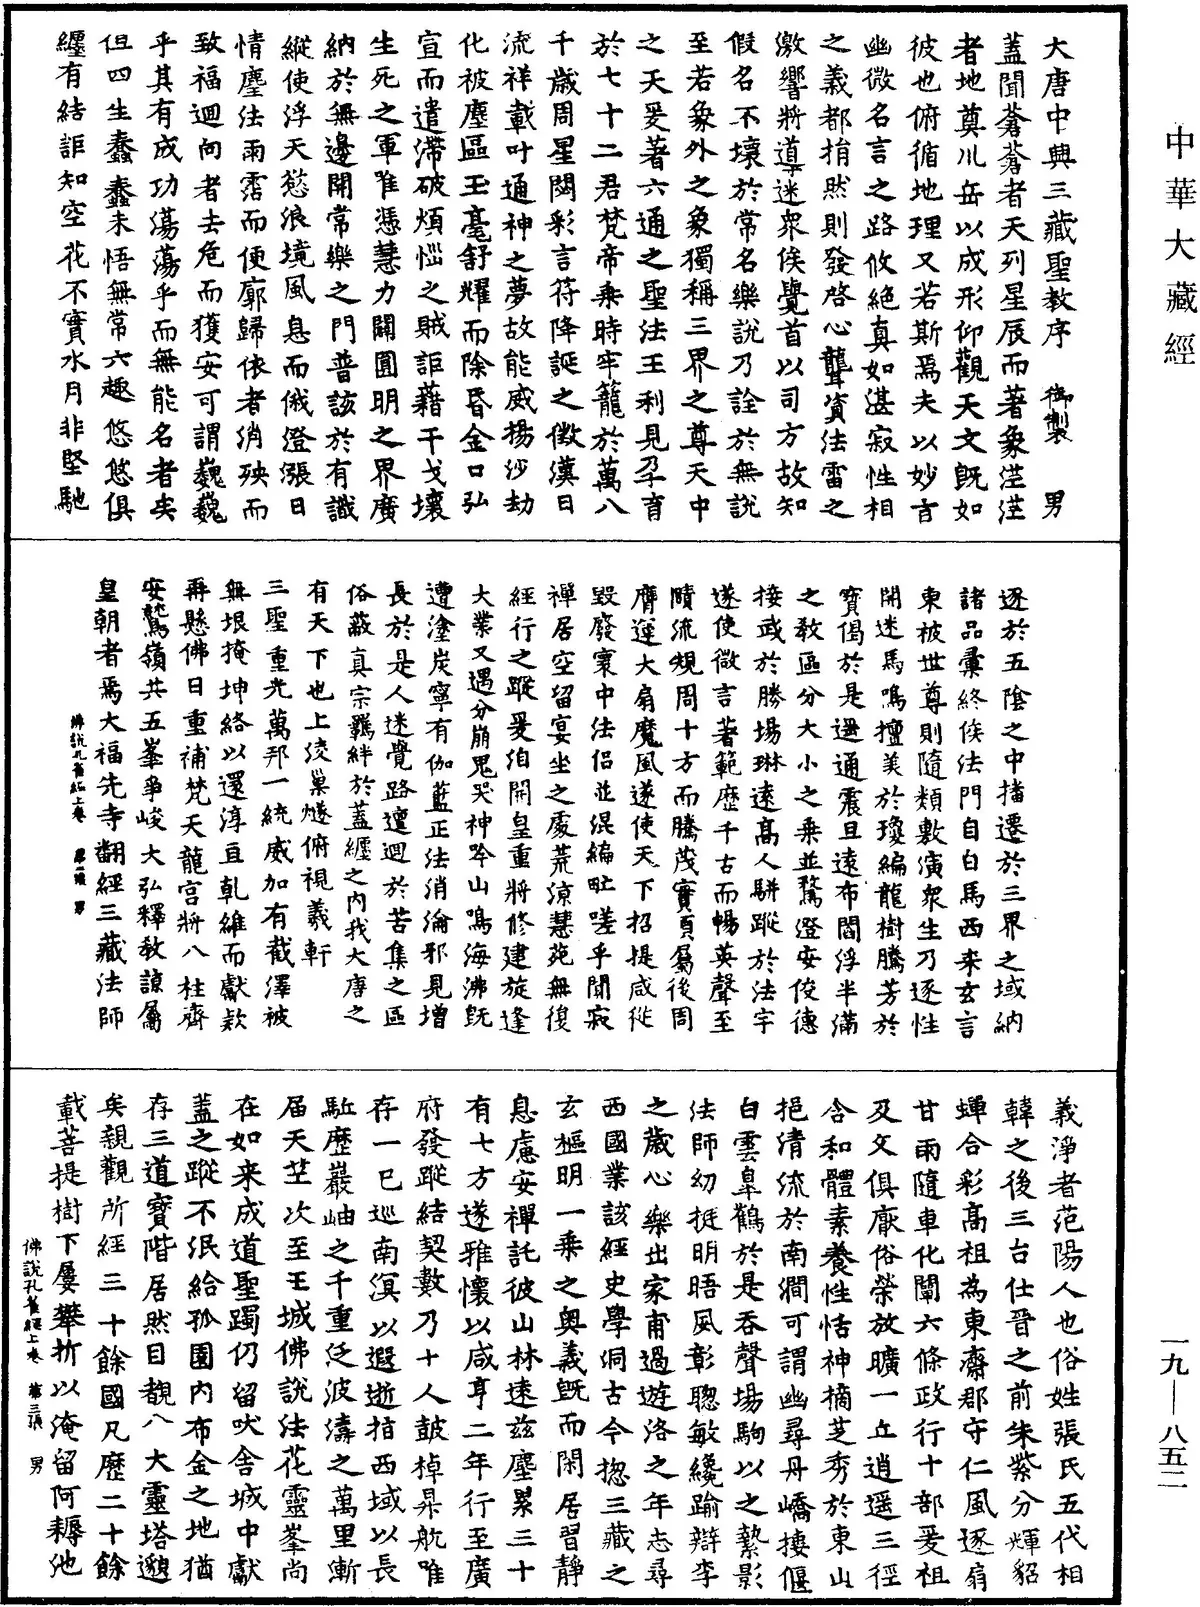 中華大藏經
大唐中興三藏聖教序　御製　男
蓋聞蒼蒼者天列星辰而著象茫茫
者地奠川岳以成形仰觀天文旣如
彼也俯循地理又若斯焉夫以妙言
幽微名言之路攸絶真如湛寂性相
之義都捐然則發啓心聾資法雷之
激響將導迷衆俟覺首以司方故知
假名不壞於常名樂說乃詮於無說
至若象外之象獨稱三界之尊天中
之天爰著六通之聖法王利見孕育
於七十二君梵帝乘時牢籠於萬八
千歲周星閟彩言符降誕之徵漢日
流祥載叶通神之夢故能威揚沙劫
化被塵區玉毫舒耀而除昏金口弘
宣而遣滯破煩惱之賊詎藉干戈壞
生死之軍唯憑慧力闢圓明之界廣
納於無邊開常樂之門普該於有識
縱使浮天慾浪境風息而俄澄漲日
情塵法雨霑而便廓歸依者消殃而
致福迴向者去危而獲安可謂巍巍
乎其有成功蕩蕩乎而無能名者矣
但四生蠢蠢未悟無常六趣悠悠俱
纏有結詎知空花不實水月非堅馳
逐於五陰之中播遷於三界之域納
諸品彙終俟法門自白馬西來玄言
東被世尊則隨類敷演衆生乃逐性
開迷馬鳴擅美於瓊編龍樹騰芳於
寶偈於是遐通震旦遠布閻浮半滿
之教區分大小之乘並騖澄安俊德
接武於勝場琳遠高人騈蹤於法宇
遂使微言著範歷千古而暢英聲至
賾流規周十方而騰茂實頁屬後周
膺運大扇魔風遂使天下招提咸從
毀廢寰中法侶並混編甿嗟乎閒寂
禪居空留宴坐之處荒涼慧苑無復
經行之蹤爰洎開皇重將修建旋逢
大業又遇分崩鬼哭神吟山鳴海沸旣
遭塗炭寧有伽藍正法消淪邪見增
長於是人迷覺路邅迴於苦集之區
俗蔽真宗羈絆於蓋纏之內我大唐之
有天下也上淩巢燧俯視羲軒
三聖重光萬邦一統威加有截澤被
無垠掩坤絡以還淳亘乹維而獻欵
再懸佛日重補梵天龍宮將八柱齊
安鷲嶺共五峯爭峻大弘釋教諒屬
皇朝者焉大福先寺翻經三藏法師
佛說孔雀經上卷　第二張　男
義淨者范陽人也俗姓張氏五代相
韓之後三台仕晉之前朱紫分輝貂
蟬合彩高祖為東齋郡守仁風逐扇
甘雨隨車化闡六條政行十部爰祖
及父俱厭俗榮放曠一丘逍遥三徑
含和體素養性恬神摘芝秀於東山
挹清流於南澗可謂幽尋丹嶠棲偃
白雲皐鶴於是吞聲場駒以之縶影
法師幼挺明晤夙彰聰敏纔踰辯李
之歲心樂出家甫過遊洛之年志尋
西國業該經史學洞古今揔三藏之
玄樞明一乘之奧義旣而閑居習靜
息慮安禪託彼山林遠茲塵累三十
有七方遂雅懷以咸亨二年行至廣
府發蹤結契數乃十人皷棹昇航唯
存一已巡南溟以遐逝指西域以長
駈歷巖岫之千重泛波濤之萬里漸
届天笁次至王城佛說法花靈峯尚
在如來成道聖躅仍留吠舍城中獻
蓋之蹤不泯給孤園內布金之地猶
存三道寶階居然目覩八大靈塔邈
矣親觀所經三十餘國凡歷二十餘
載菩提樹下屢攀折以淹留阿耨池
佛說孔雀經上卷　第三張　男
一九—八五二